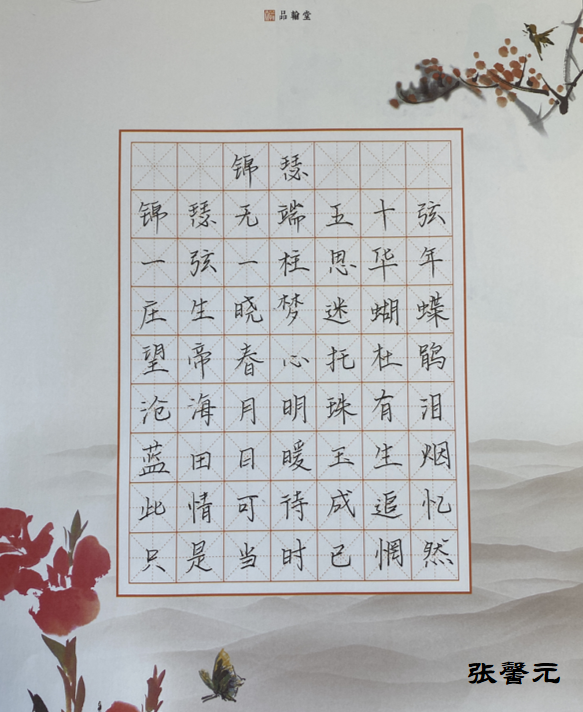 品翰堂
锦瑟
锦瑟无端五十弦
一弦一柱思华年
庄生晓梦迷蝴蝶
望帝春心托杜鹃
沧海月明珠有泪
蓝田日暖玉生烟
此情可待成追忆
只是当时已惘然
张馨元